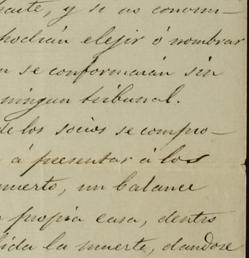 parte, y si no convini-
podrán elejir ó nombrar
se conformarán sin
ningun tribunal.
de los socios se compro-
á presentar á los
muerto, un balance
propia casa, dentro
la muerte, dandose